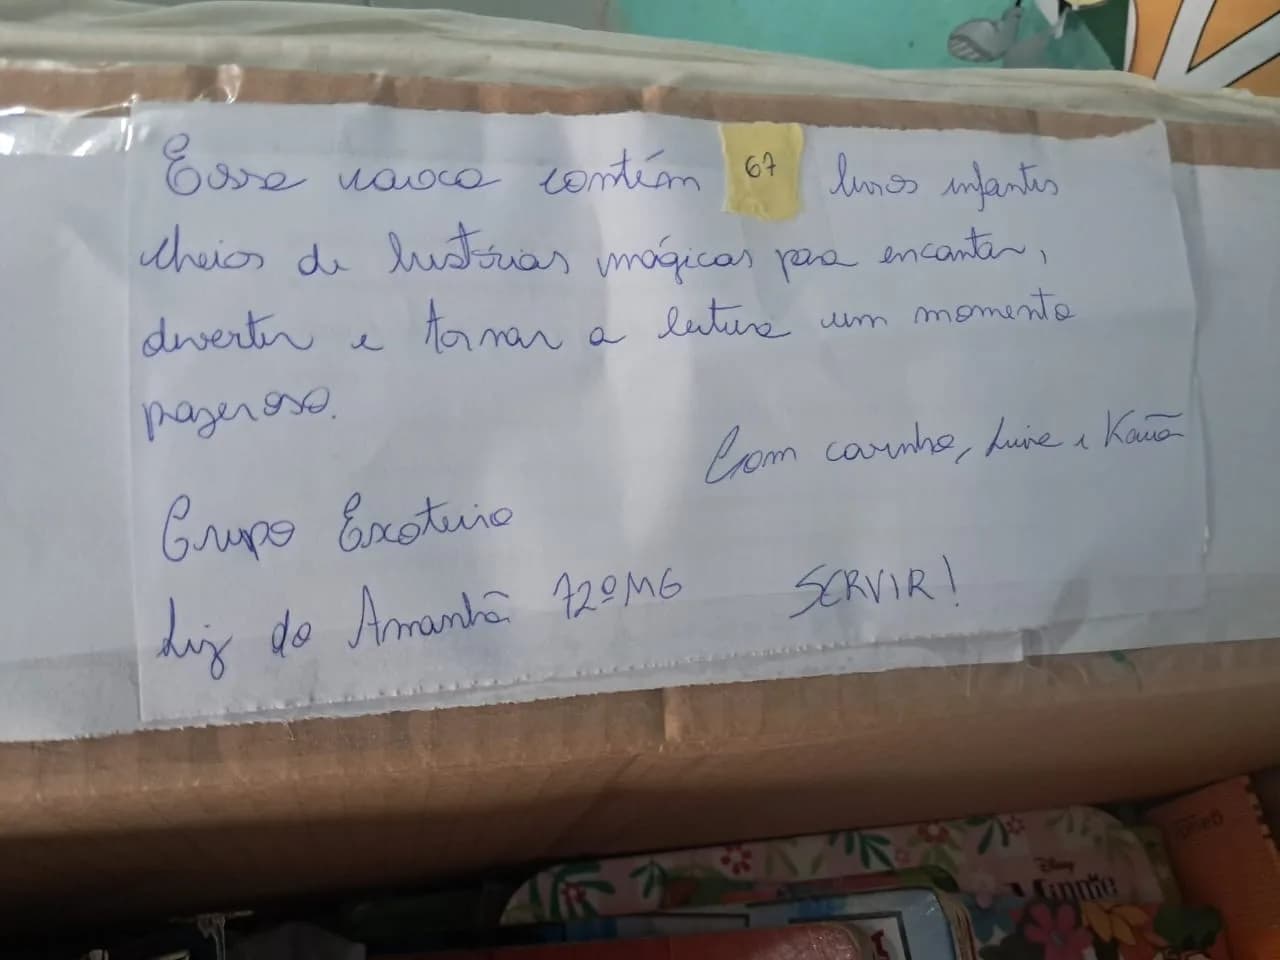 Essa caixa contém 67 livros infantis
cheios de histórias mágicas para encantar,
divertir e tornar a leitura um momento
prazeroso.
Com carinho, Livia e Kauã
Grupo Escoteiro
Luz do Amanhã 72º MG SERVIR!
Disney
Minnie